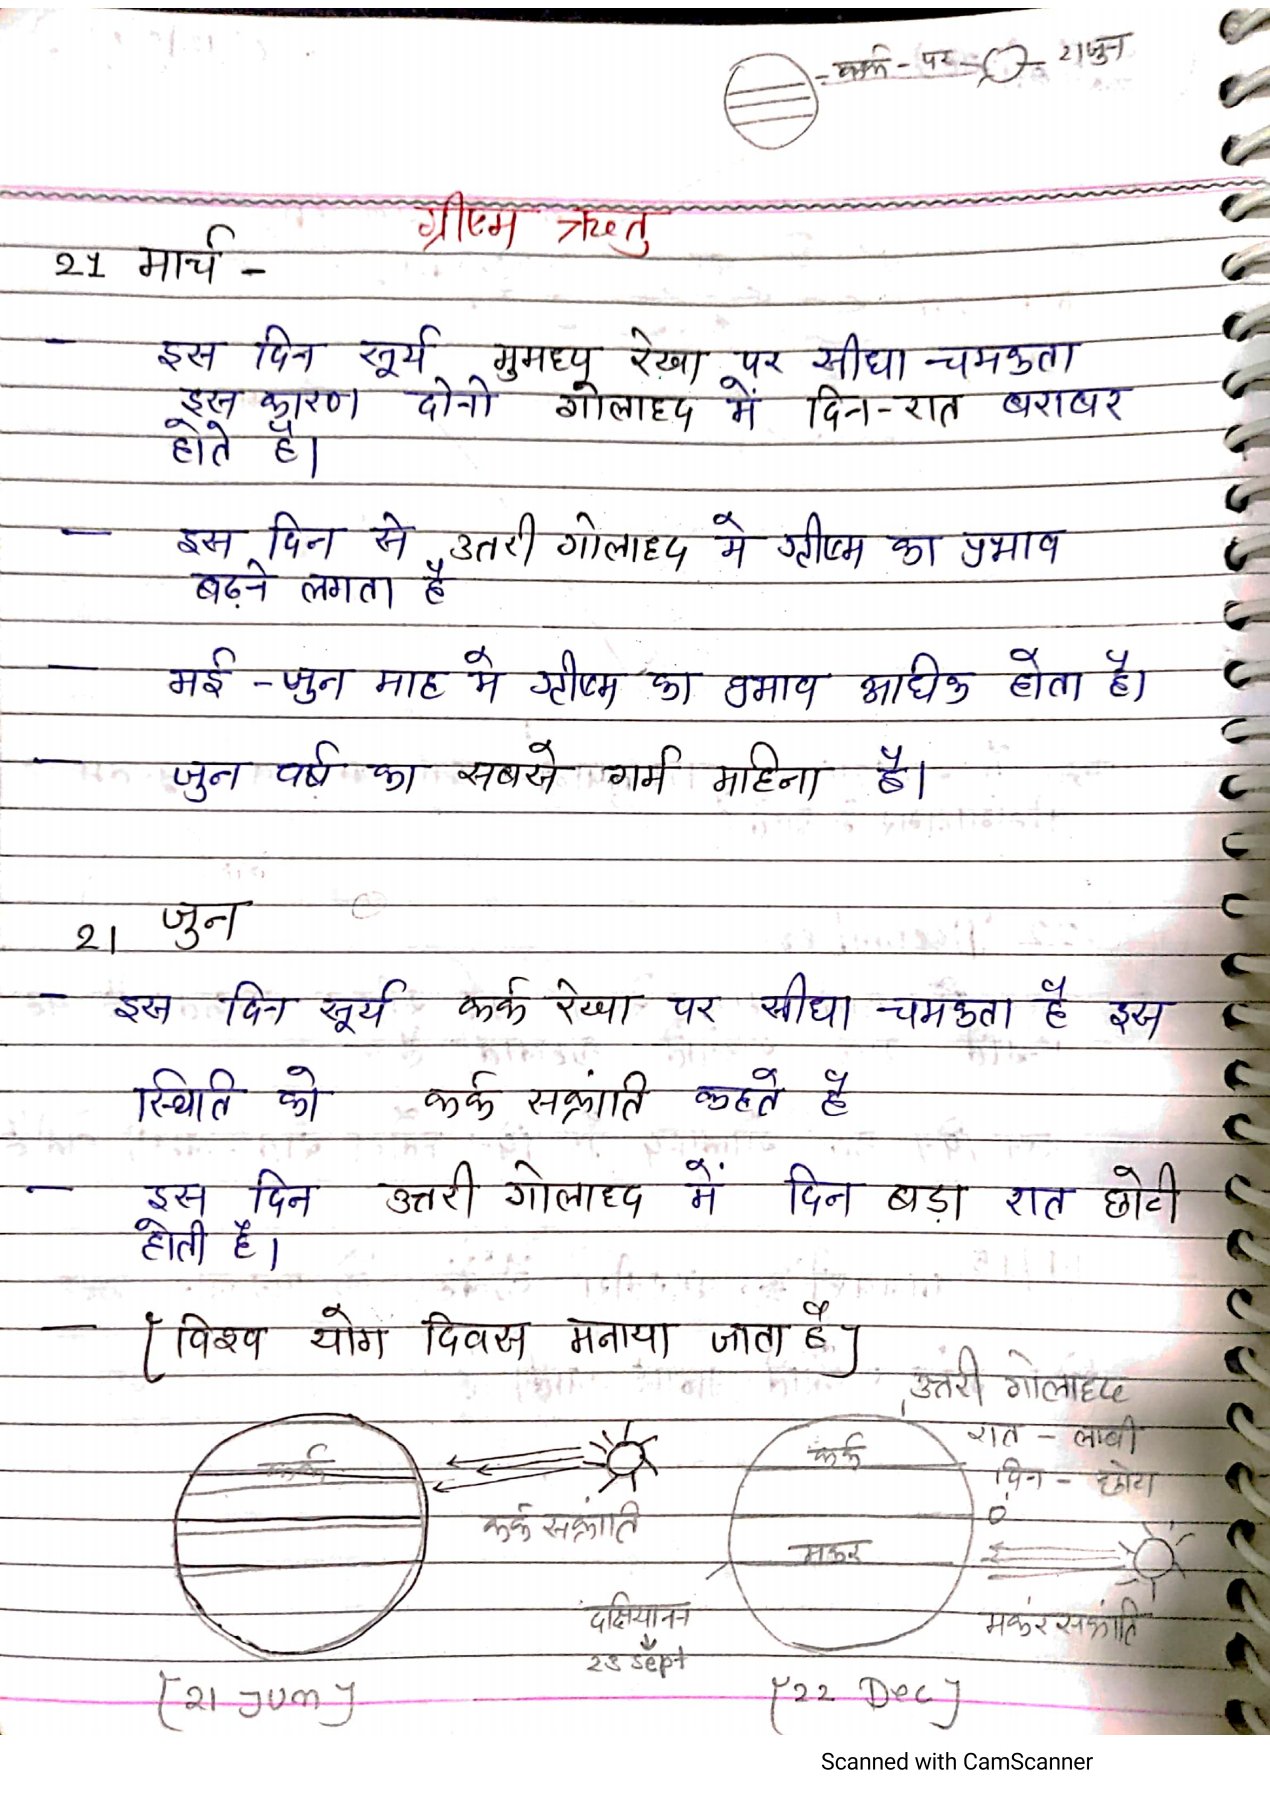 कर्क - पर - 21 जुन
ग्रीष्म ऋतु
21 मार्च -
- इस दिन सूर्य भुमध्य रेखा पर सीधा चमकता
इस कारण दोनो गोलाद्द में दिन-रात बराबर
होते है।
- इस दिन से उतरी गोलाद्द मे ग्रीष्म का प्रभाव
बढ़ने लगता है
- मई - जुन माह मे ग्रीष्म का प्रभाव अधिक होता है।
- जुन वर्ष का सबसे गर्म महिना है।
21 जुन
- इस दिन सूर्य कर्क रेखा पर सीधा चमकता है इस
स्थिति को कर्क सक्रांति कहते है
- इस दिन उत्तरी गोलाद्द में दिन बड़ा रात छोटी
होती है।
- [विश्व योग दिवस मनाया जाता है]
उत्तरी गोलाद्द
रात - लम्बी
दिन - छोटा
कर्क
कर्क सक्रांति
कर्क
0°
मकर
मकर सक्रांति
23 Sept
[21 Jun]
[22 Dec]
Scanned with CamScanner